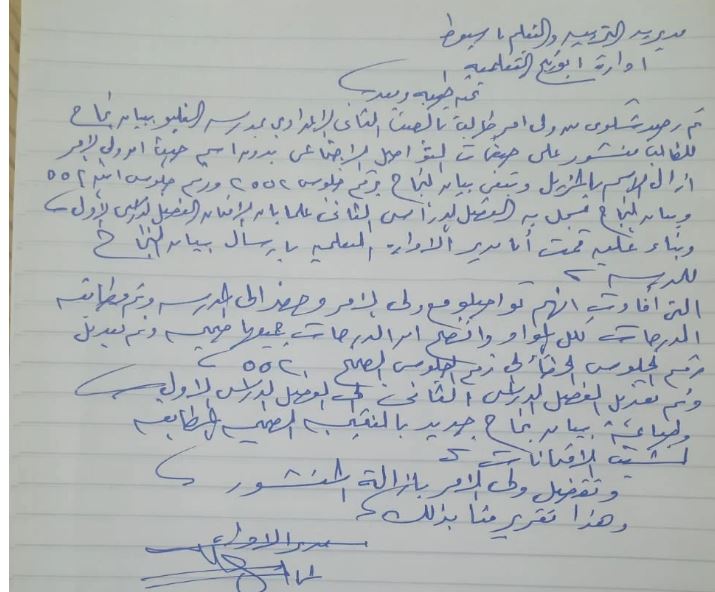 مديرية التربية والتعليم باسيوط
ادارة ابوتيج التعليمية
تحيه طيبه وبعد
تم رصد شكوى من ولى امر طالبة بالصف الثانى الاعدادي بمدرسه بيان نجاح
للطالبة منشور على صفحات التواصل الاجتماعى بدون اسم حيث ان ولى الامر
ازال الاسم وتبقى بيان النجاح برقم جلوس ٢٥٥٢ ورقم جلوس ابنته ٢٥٥
وبيان النجاح مسجل به الفصل الدراسى الثانى علما بان الامتحان الفصل الدراسى الأول
وبناء عليه قمت أنا مدير الادارة التعلميه بارسال بيان النجاح
للمدرسه
التى أفادت انهم تواصلو مع ولى الامر وحضر الى المدرسه وتم مطابقه
الدرجات لكل المواد واتضح ان الدرجات جميعها صحيحه وتم تعديل
رقم الجلوس الخطأ الى رقم الجلوس الصحيح ٢٥٥
وتم تعديل الفصل الدراسى الثانى الى الفصل الدراسى الاول
وطباعة بيان نجاح جديد المطابقه
لشيت الامتحانات
وتفضل ولى الامر بازالة المنشور
وهذا تقرير منا بذلك
مدير الادارة